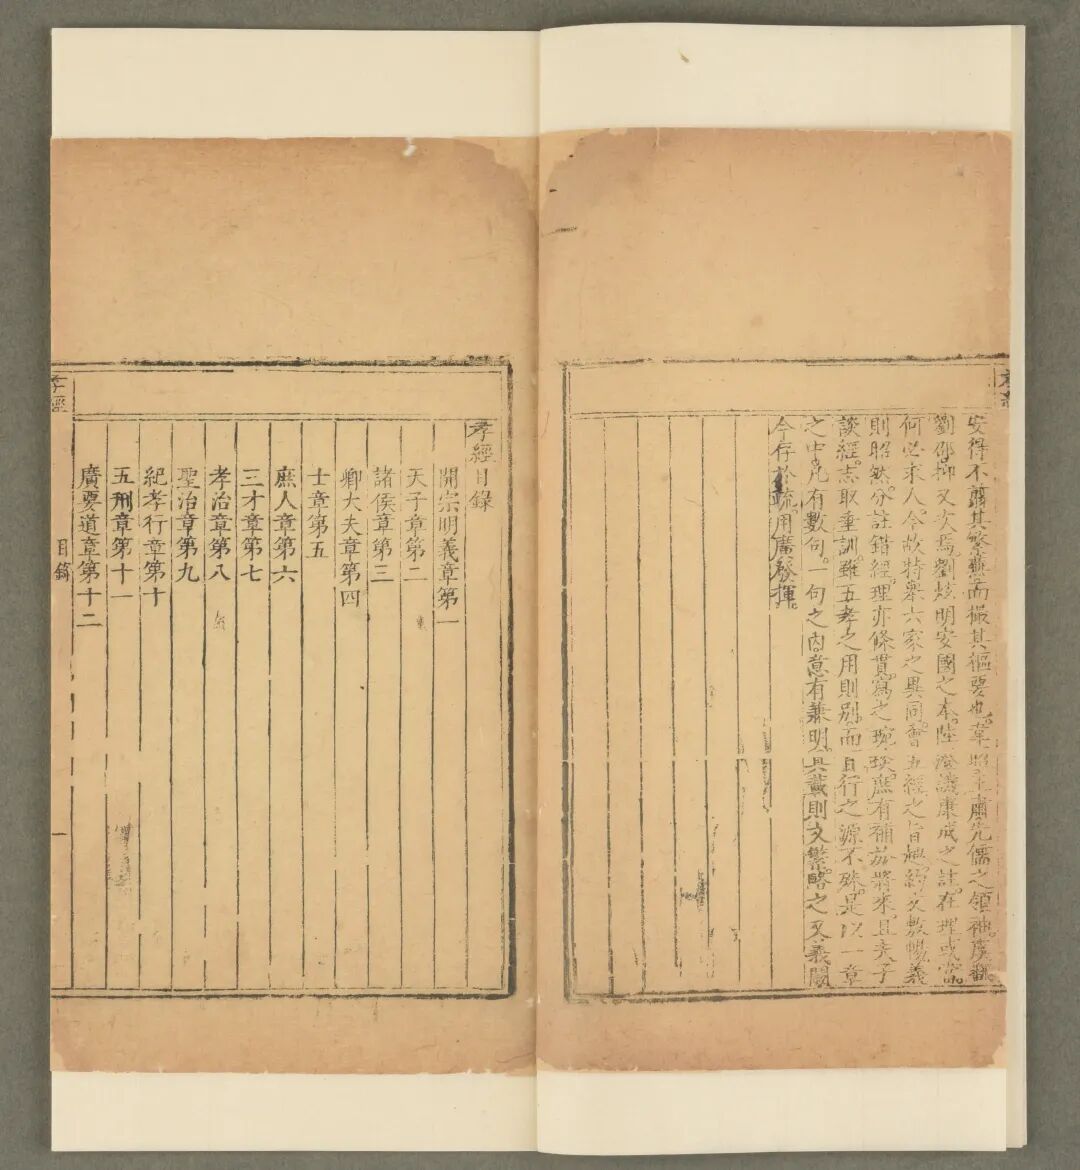 安得不翦其繁蕪而撮其樞要也。韋昭王肅先儒之領袖。虞翻
劉邵抑又次焉。劉炫明安國之本。陸澄譏康成之註。在理或當。
何必求人。今故特舉六家之異同。會五經之旨趣。約文敷暢。義
則昭然。分註錯經。理亦條貫。寫之琬琰。庶有補於將來。且夫子
談經。志取垂訓。雖五孝之用則別。而百行之源不殊。是以一章
之中。凡有數句。一句之內。意有兼明。具載則文繁。略之又義闕。
今存於疏。用廣發揮。
孝經目錄
開宗明義章第一
天子章第二
諸侯章第三
卿大夫章第四
士章第五
庶人章第六
三才章第七
孝治章第八
聖治章第九
紀孝行章第十
五刑章第十一
廣要道章第十二
孝經
目錄
一